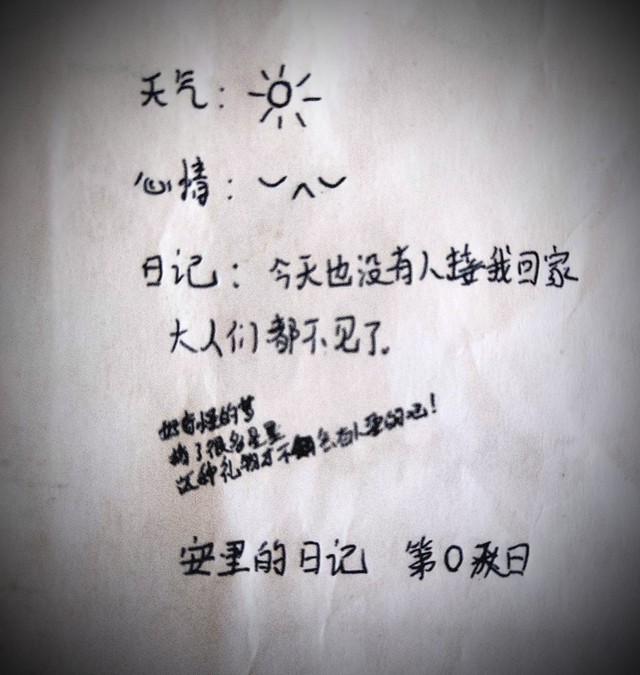 天气：
心情：
日记：今天也没有人接我回家
大人们都不见了。
好奇怪的梦
摘了很多星星
这种礼物才不会有人要的吧！
安里的日记 第0日